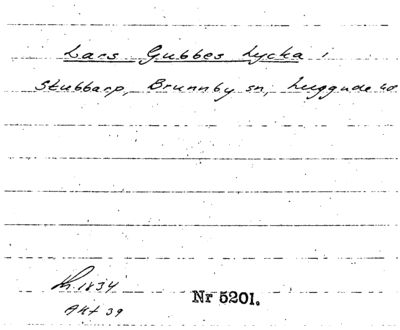 Lars Gubbes Lycka i
Stubbarp, Brunnby sn, Luggude hd.
Lh. 1834
Akt 39
Nr 5201.